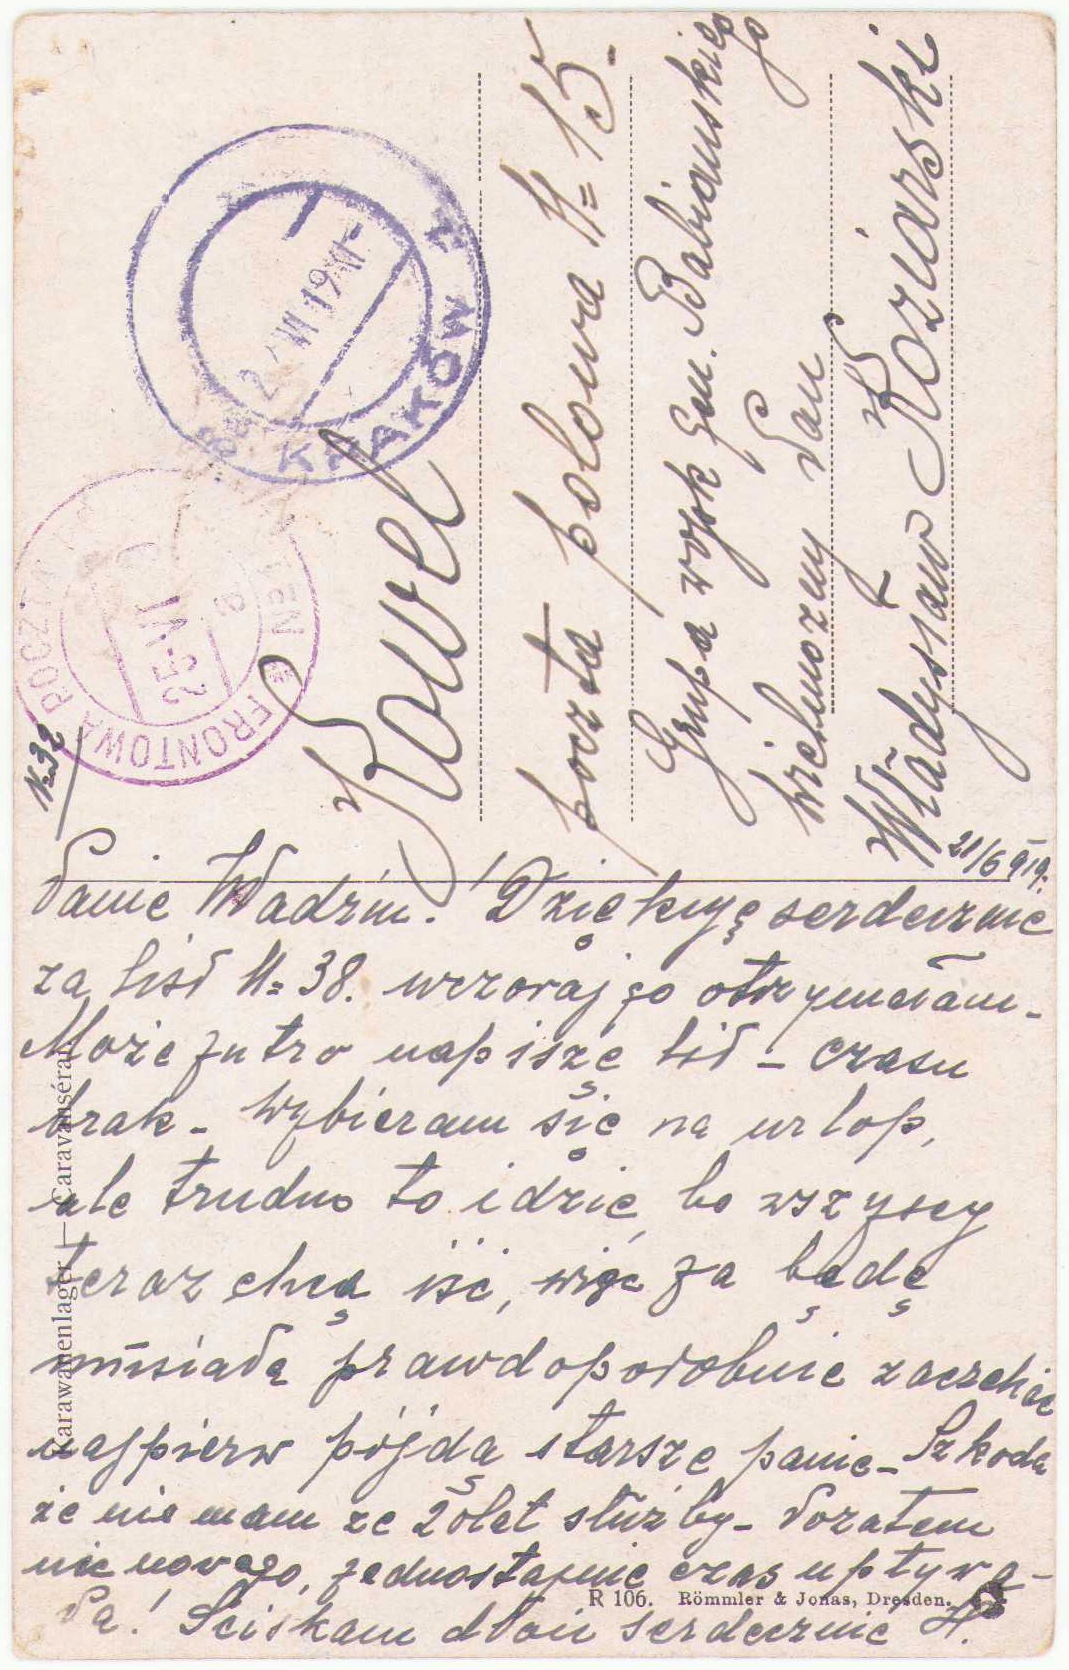 KRAKÓW
FRONTOWA POCZTA
25-VI
N=32
Kowel
poczta polowa N=15.
Grupa wojsk gen. Babiańskiego
Wielmożny Pan
Władysław Koziarski
21/6 919.
Panie Władziu! Dziękuję serdecznie
za list N=38. wczoraj go otrzymałam-
Może jutro napiszę list – czasu
brak – Wybieram się na urlop,
ale trudno to idzie, bo wszyscy
teraz chcą iść, więc ja będę
musiała prawdopodobnie zaczekać
najpierw pójdą starsze panie – Szkoda
że nie mam ze 20 lat służby – Pozatem
nic nowego, jednostajnie czas upływa –
Pa! Ściskam dłoń serdecznie H.
Karawanenlager — Caravansérai
R 106. Römmler & Jonas, Dresden.